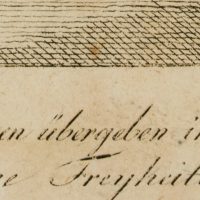 en übergeben i
e Freyheit